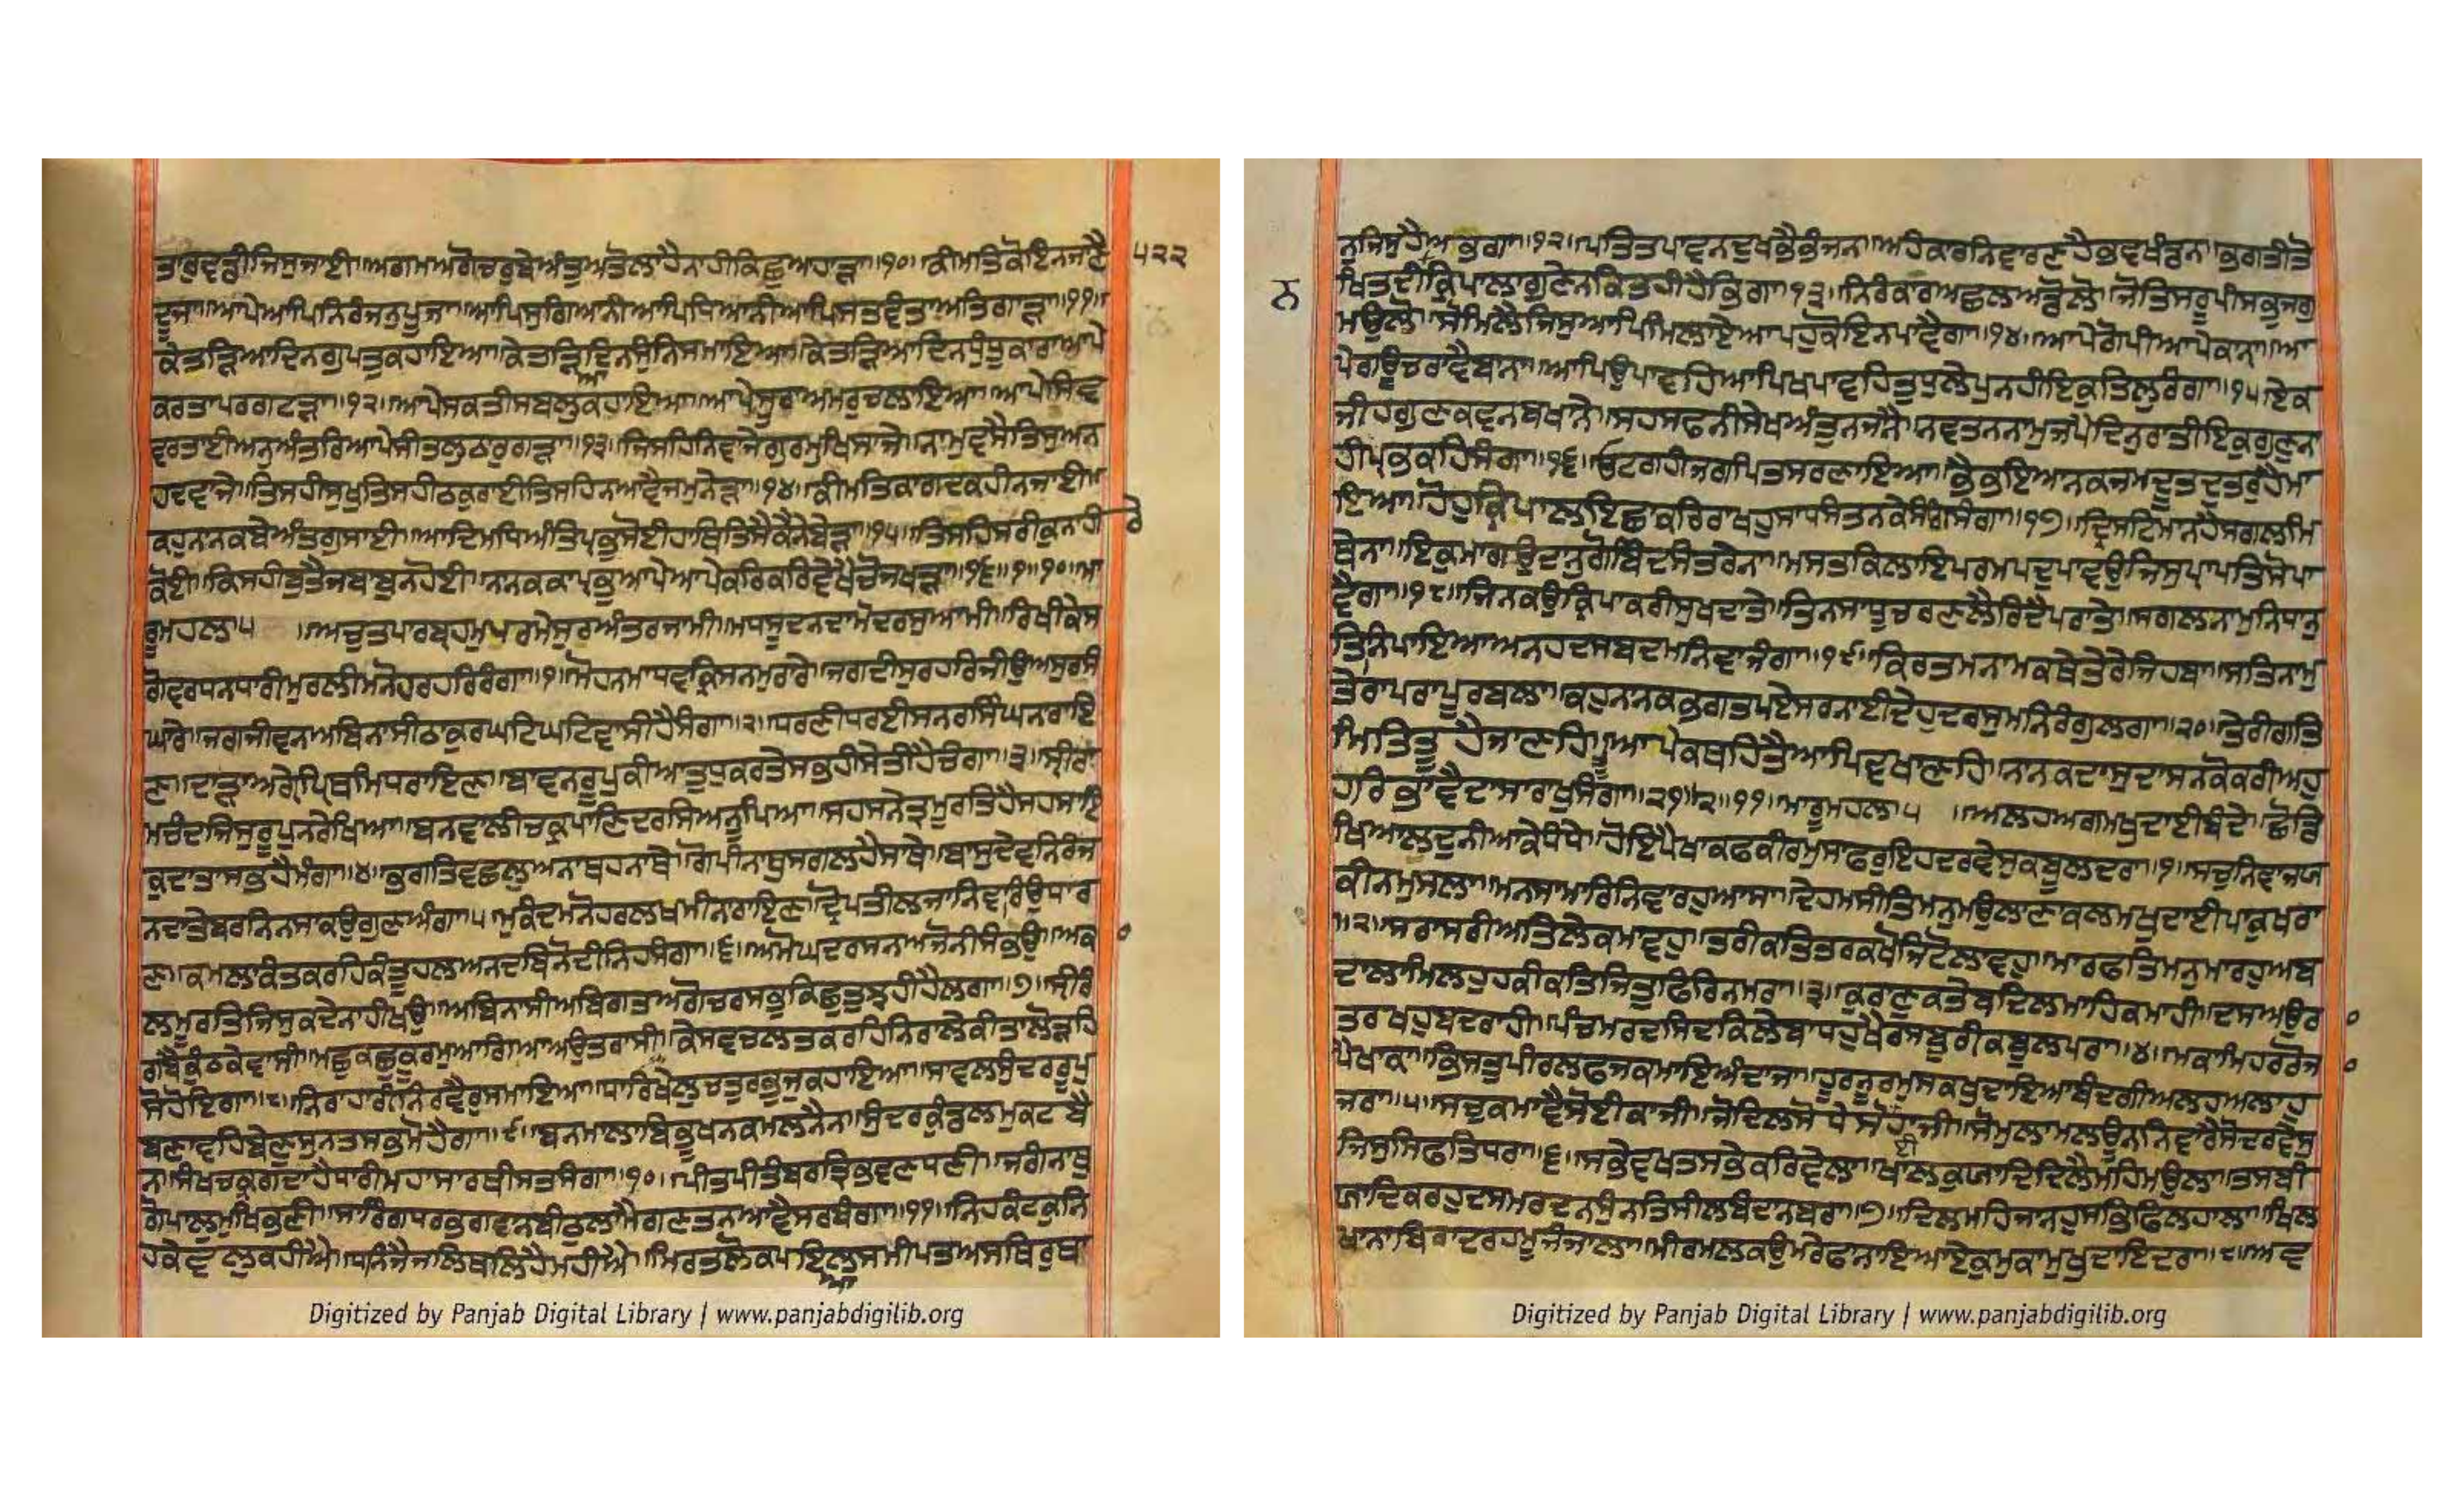 ਤਾਰੁਵਡੀਜਿਸੁਜਾਈ॥ਅਗਮਅਗੋਚਰੁਬੇਅੰਤੁਅਤੋਲਾਹੈਨਾਹੀਕਿਛੁਅਹਾੜਾ॥੧੦॥ਕੀਮਤਿਕੋਇਨਜਾਣੈ ੫੨੨
ਦੂਜਾ॥ਆਪੇਆਪਿਨਿਰੰਜਨੁਪੂਜਾ॥ਆਪਿਸੁਗਿਆਨੀਆਪਿਧਿਆਨੀਆਪਿਸਤਵੰਤਾਅਤਿਗਾੜਾ॥੧੧॥
ਕੇਤੜਿਆਦਿਨਗੁਪਤੁਕਹਾਇਆ॥ਕੇਤੜਿਆਦਿਨਸੁੰਨਿਸਮਾਇਆ॥ਕੇਤੜਿਆਦਿਨਧੁੰਧੂਕਾਰਾਆਪੇ
ਕਰਤਾਪਰਗਟੜਾ॥੧੨॥ਆਪੇਸਕਤੀਸਬਲੁਕਹਾਇਆ॥ਆਪੇਸੂਰਾਅਮਰੁਚਲਾਇਆ॥ਆਪੇਸਿਵ
ਵਰਤਾਈਅਨੁਅੰਤਰਿਆਪੇਸੀਤਲੁਠਾਰੁਗੜਾ॥੧੩॥ਜਿਸਹਿਨਿਵਾਜੇਗੁਰਮੁਖਿਸਾਜੇ॥ਨਾਮੁਵਸੈਤਿਸੁਅਨ
ਹਦਵਾਜੇ॥ਤਿਸਹੀਸੁਖੁਤਿਸਹੀਠਕੁਰਾਈਤਿਸਹਿਨਆਵੈਜਮੁਨੇੜਾ॥੧੪॥ਕੀਮਤਿਕਾਗਦਕਹੀਨਜਾਈ॥
ਕਹੁਨਾਨਕਬੇਅੰਤਗੁਸਾਈ॥ਆਦਿਮਧਿਅੰਤਿਪ੍ਰਭੁਸੋਈਹਾਥਿਤਿਸੈਕੈਨੇਬੇੜਾ॥੧੫॥ਤਿਸਹਿਸਰੀਕੁਨਾਹੀਰੇ
ਕੋਈ॥ਕਿਸਹੀਬੁਤੈਜਬਾਬੁਨਹੋਈ॥ਨਾਨਕਕਾਪ੍ਰਭੁਆਪੇਆਪੇਕਰਿਕਰਿਵੇਖੈਚੋਜਖੜਾ॥੧੬॥੧॥੧੦॥ਮਾ
ਰੂਮਹਲਾ੫॥ਅਚੁਤਪਾਰਬ੍ਰਹਮੁਪਰਮੇਸੁਰਅੰਤਰਜਾਮੀ॥ਮਧਸੂਦਨਦਾਮੋਦਰਸੁਆਮੀ॥ਰਿਖੀਕੇਸ
ਗੋਵਰਧਨਧਾਰੀਮੁਰਲੀਮਨੋਹਰਹਰਿਰੰਗਾ॥੧॥ਮੋਹਨਮਾਧਵਕ੍ਰਿਸਨਮੁਰਾਰੇ॥ਜਗਦੀਸੁਰਹਰਿਜੀਉਅਸੁਰਸੰ
ਘਾਰੇ॥ਜਗਜੀਵਨਅਬਿਨਾਸੀਠਾਕੁਰਘਟਿਘਟਿਵਾਸੀਹੈਸੰਗਾ॥੨॥ਧਰਣੀਧਰਈਸਨਰਸਿੰਘਨਰਾਇ
ਣ॥ਦਾੜਾਅਗ੍ਰੇਪ੍ਰਿਥਮਿਧਰਾਇਣ॥ਬਾਵਨਰੂਪੁਕੀਆਤੁਧੁਕਰਤੇਸਭਹੀਸੇਤੀਹੈਚੰਗਾ॥੩॥ਸ੍ਰੀਰਾ
ਮਚੰਦਜਿਸੁਰੂਪੁਨਰੇਖਿਆ॥ਬਨਵਾਲੀਚਕ੍ਰਪਾਣਿਦਰਸਿਅਨੂਪਿਆ॥ਸਹਸਨੇਤ੍ਰਮੂਰਤਿਹੈਸਹਸਾਇ
ਕੁਦਾਤਾਸਭਹੈਮੰਗਾ॥੪॥ਭਗਤਿਵਛਲੁਅਨਾਥਹਨਾਥੇ॥ਗੋਪੀਨਾਥੁਸਗਲਹੈਸਾਥੇ॥ਬਾਸੁਦੇਵਨਿਰੰਜ
ਨਦਾਤੇਬਰਨਿਨਸਾਕਉਗੁਣਅੰਗਾ॥੫॥ਮੁਕੰਦਮਨੋਹਰਲਖਮੀਨਰਾਇਣ॥ਦ੍ਰੋਪਤੀਲਜਾਨਿਵਾਰਿਉਧਾਰ
ਣ॥ਕਮਲਾਕੰਤਕਰਹਿਕੰਤੂਹਲਅਨਦਬਿਨੋਦੀਨਿਹਸੰਗਾ॥੬॥ਅਮੋਘਦਰਸਨਅਜੋਨੀਸੰਭਉ॥ਅਕਾ
ਲਮੂਰਤਿਜਿਸੁਕਦੇਨਾਹੀਖਉ॥ਅਬਿਨਾਸੀਅਬਿਗਤਅਗੋਚਰਸਭੁਕਿਛੁਤੁਝਹੀਹੈਲਗਾ॥੭॥ਸ੍ਰੀਰੰ
ਗਬੈਕੁੰਠਕੇਵਾਸੀ॥ਮਛੁਕਛੁਕੂਰਮੁਆਗਿਆਅਉਤਰਾਸੀ॥ਕੇਸਵਚਲਤਕਰਹਿਨਿਰਾਲੇਕੀਤਾਲੋੜਹਿ
ਸੋਹੋਇਗਾ॥੮॥ਨਿਰਾਹਾਰੀਨਿਰਵੈਰੁਸਮਾਇਆ॥ਧਾਰਿਖੇਲੁਚਤੁਰਭੁਜੁਕਹਾਇਆ॥ਸਾਵਲਸੁੰਦਰਰੂਪੁ
ਬਣਾਵਹਿਬੇਣੁਸੁਨਤਸਭਮੋਹੈਗਾ॥੯॥ਬਨਮਾਲਾਬਿਭੂਖਨਕਮਲਨੈਨ॥ਸੁੰਦਰਕੁੰਡਲਮੁਕਟਬੈ
ਨ॥ਸੰਖਚਕ੍ਰਗਦਾਹੈਧਾਰੀਮਹਾਸਾਰਥੀਸਤਸੰਗਾ॥੧੦॥ਪੀਤਪੀਤੰਬਰਤ੍ਰਿਭਵਣਧਣੀ॥ਜਗੰਨਾਥੁ
ਗੋਪਾਲੁਮੁਖਿਭਣੀ॥ਸਾਰਿੰਗਧਰਭਗਵਾਨਬੀਠੁਲਾਮੈਗਣਤਨਆਵੈਸਰਬੰਗਾ॥੧੧॥ਨਿਹਕੰਟਕੁਨਿ
ਹਕੇਵਲੁਕਹੀਐ॥ਧਨੰਜੈਜਲਿਥਲਿਹੈਮਹੀਐ॥ਮਿਰਤਲੋਕਪਇਆਲਸਮੀਪਤਅਸਥਿਰੁਥਾ
Digitized by Panjab Digital Library | www.panjabdigilib.org
ਨੁਜਿਸੁਹੈਅਭਗਾ॥੧੨॥ਪਤਿਤਪਾਵਨਦੁਖਭੈਭੰਜਨ॥ਅਹੰਕਾਰਨਿਵਾਰਣਹੈਭਵਖੰਡਨ॥ਭਗਤੀਤੋ
ਨ ਖਿਤਦੀਕ੍ਰਿਪਾਲਾਗੁਣੇਨਕਿਤਹੀਹੈਭਿਗਾ॥੧੩॥ਨਿਰੰਕਾਰਅਛਲਅਡੋਲੋ॥ਜੋਤਿਸਰੂਪੀਸਭੁਜਗੁ
ਮਉਲੋ॥ਸੋਮਿਲੈਜਿਸੁਆਪਿਮਿਲਾਏਆਪਹੁਕੋਇਨਪਾਵੈਗਾ॥੧੪॥ਆਪੇਗੋਪੀਆਪੇਕਾਨਾ॥ਆ
ਪੇਗਊਚਰਾਵੈਬਾਨਾ॥ਆਪਿਉਪਾਵਹਿਆਪਿਖਪਾਵਹਿਤੁਧੁਲੇਪੁਨਹੀਇਕੁਤਿਲੁਰੰਗਾ॥੧੫॥ਏਕ
ਜੀਹਗੁਣਕਵਨਬਖਾਨੈ॥ਸਹਸਫਨੀਸੇਖਅੰਤੁਨਜਾਨੈ॥ਨਵਤਨਨਾਮਜਪੈਦਿਨੁਰਾਤੀਇਕੁਗੁਣੁਨਾ
ਹੀਪ੍ਰਭਕਹਿਸੰਗਾ॥੧੬॥ਓਟਗਹੀਜਗਪਿਤਸਰਣਾਇਆ॥ਭੈਭਇਆਨਕਜਮਦੂਤਦੁਤਰੁਹੈਮਾ
ਇਆ॥ਹੋਹੁਕ੍ਰਿਪਾਲਇਛਾਕਰਿਰਾਖਹੁਸਾਧਸੰਤਨਕੈਸੰਗਿਸੰਗਾ॥੧੭॥ਦ੍ਰਿਸਟਿਮਾਨਹੈਸਗਲਮਿ
ਥੇਨਾ॥ਇਕੁਮਾਗਉਦਾਨੁਗੋਬਿੰਦਸੰਤਰੇਨਾ॥ਮਸਤਕਿਲਾਇਪਰਮਪਦੁਪਾਵਉਜਿਸੁਪ੍ਰਾਪਤਿਸੋਪਾ
ਵੈਗਾ॥੧੮॥ਜਿਨਕਉਕ੍ਰਿਪਾਕਰੀਸੁਖਦਾਤੇ॥ਤਿਨਸਾਧੂਚਰਣਲੈਰਿਦੈਪਰਾਤੇ॥ਸਗਲਨਾਮੁਨਿਧਾਨੁ
ਤਿਨਿਪਾਇਆਅਨਹਦਸਬਦਮਨਿਵਾਜੰਗਾ॥੧੯॥ਕਿਰਤਮਨਾਮਕਥੇਤੇਰੇਜਿਹਬਾ॥ਸਤਿਨਾਮੁ
ਤੇਰਾਪਰਾਪੂਰਬਲਾ॥ਕਹੁਨਾਨਕਭਗਤਪਏਸਰਨਾਈਦੇਹੁਦਰਸੁਮਨਿਰੰਗੁਲਗਾ॥੨੦॥ਤੇਰੀਗਤਿ
ਮਿਤਿਤੂਹੈਜਾਣਹਿ॥ਤੂਆਪੇਕਥਹਿਤੈਆਪਿਵਖਾਣਹਿ॥ਨਾਨਕਦਾਸੁਦਾਸਨਕੋਕਰੀਅਹੁ
ਹਰਿਭਾਵੈਦਾਸਾਰਾਖੁਸੰਗਾ॥੨੧॥੨॥੧੧॥ਮਾਰੂਮਹਲਾ੫॥ਅਲਹਅਗਮਖੁਦਾਈਬੰਦੇ॥ਛੋਡਿ
ਖਿਆਲਦੁਨੀਆਕੇਧੰਧੇ॥ਹੋਇਪੈਖਾਕਫਕੀਰਮੁਸਾਫਰੁਇਹਦਰਵੇਸੁਕਬੂਲਦਰਾ॥੧॥ਸਚੁਨਿਵਾਜਯ
ਕੀਨਮੁਸਲਾ॥ਮਨਸਾਮਾਰਿਨਿਵਾਰਹੁਆਸਾ॥ਦੇਹਮਸੀਤਿਮਨੁਮਉਲਾਣਾਕਲਮਖੁਦਾਈਪਾਕੁਖਰਾ
॥੨॥ਸਰਾਸਰੀਅਤਿਲੇਕਮਾਵਹੁ॥ਤਰੀਕਤਿਤਰਕਖੋਜਿਟੋਲਾਵਹੁ॥ਮਾਰਫਤਿਮਨੁਮਾਰਹੁਅਬ
ਦਾਲਾਮਿਲਹੁਹਕੀਕਤਿਜਿਤੁਫਿਰਿਨਮਰਾ॥੩॥ਕੁਰਾਣੁਕਤੇਬਦਿਲਮਾਹਿਕਮਾਹੀ॥ਦਸਅਉਰਾ
ਤਰਖਹੁਬਦਰਾਹੀ॥ਪੰਚਮਰਦਸਿਦਕਿਲੇਬਾਧਹੁਖੈਰਸਬੂਰੀਕਬੂਲਪਰਾ॥੪॥ਮਕਾਮਿਹਰਰੋਜਾ
ਪੈਖਾਕਾ॥ਭਿਸਤੁਪੀਰਲਫਜਕਮਾਇਅੰਦਾਜਾ॥ਹੂਰਨੂਰਮੁਸਕਖੁਦਾਇਆਬੰਦਗੀਅਲਹਆਲਾਹੁ
ਜਰਾ॥੫॥ਸਚੁਕਮਾਵੈਸੋਈਕਾਜੀ॥ਜੋਦਿਲਸੋਧੈਸੋਈਹਾਜੀ॥ਸੋਮੁਲਾਮਲਊਨਨਿਵਾਰੈਸੋਦਰਵੇਸੁ
ਜਿਸੁਸਿਫਤਿਧਰਾ॥੬॥ਸਭੇਵਖਤਸਭੇਕਰਿਵੇਲਾ॥ਖਾਲਕੁਯਾਦਿਦਿਲੈਮਹਿਮਉਲਾ॥ਤਸਬੀ
ਯਾਦਿਕਰਹੁਦਸਮਰਦਨਸੁੰਨਤਿਸੀਲਬੰਧਾਨਬਰਾ॥੭॥ਦਿਲਮਹਿਜਾਨਹੁਸਭਿਫਿਲਹਾਲਾ॥ਖਿਲ
ਖਾਨਾਬਿਰਾਦਰਹਮੂਜੰਜਾਲਾ॥ਮੀਰਮਲਕਉਮਰੇਫਾਨਾਇਆਏਕੁਮੁਕਾਮੁਖੁਦਾਇਦਰਾ॥੮॥ਅਵ
Digitized by Panjab Digital Library | www.panjabdigilib.org